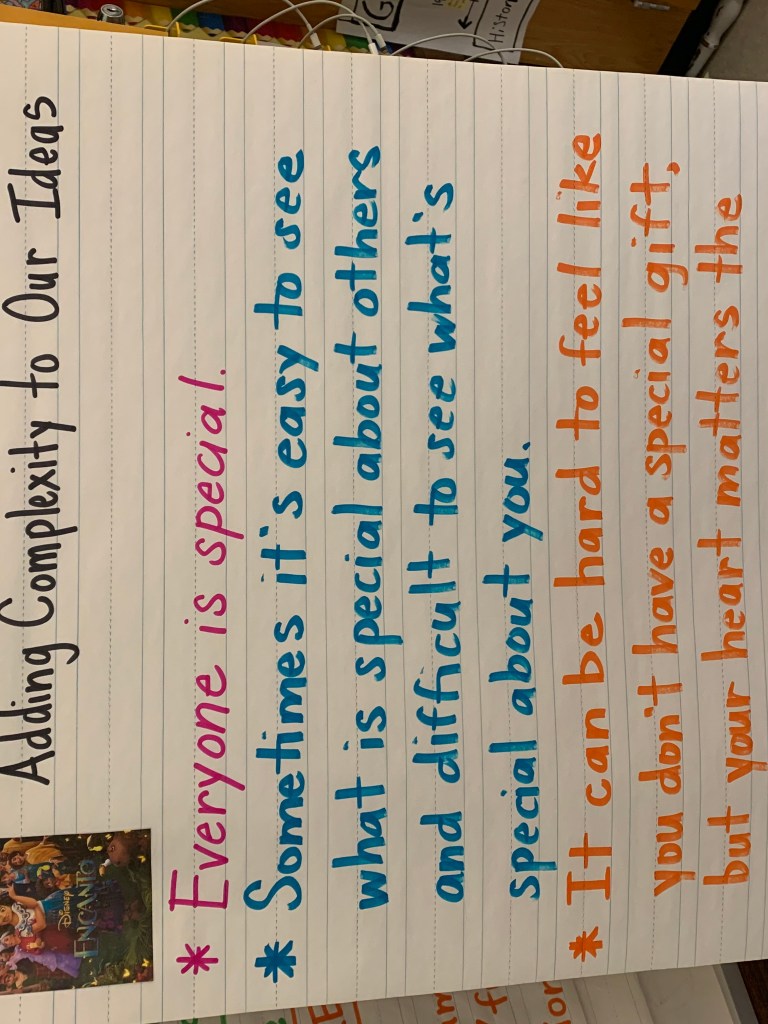 Adding Complexity to Our Ideas
DISNEY
ENCANTO
* Everyone is special.
* Sometimes it's easy to see
what is special about others
and difficult to see what's
special about you.
* It can be hard to feel like
you don't have a special gift,
but your heart matters the
Histor
G